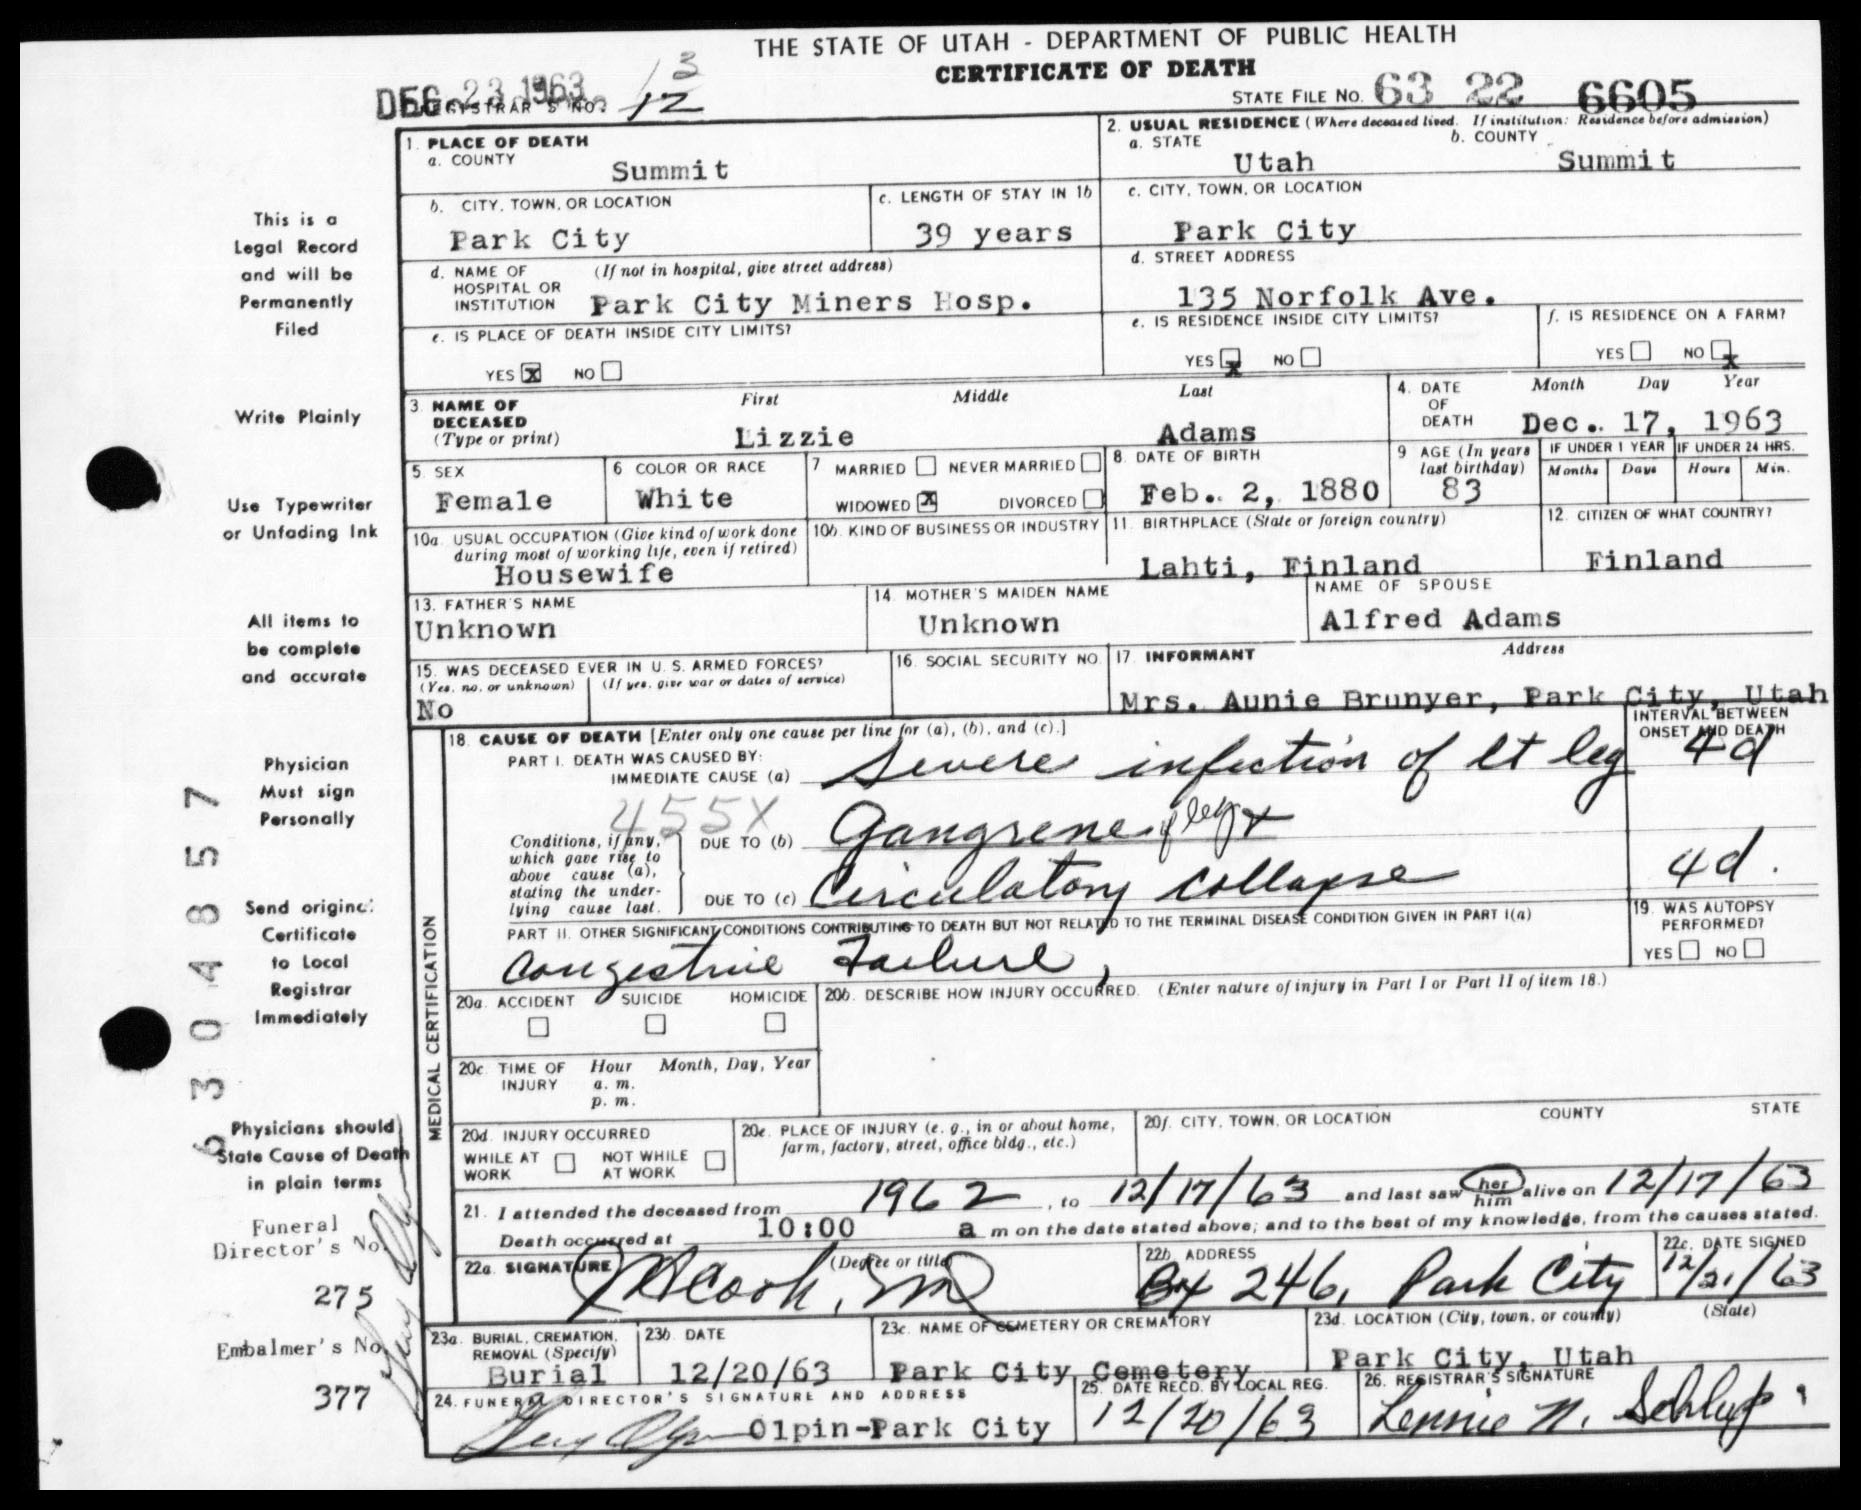 THE STATE OF UTAH - DEPARTMENT OF PUBLIC HEALTH
CERTIFICATE OF DEATH
DEC 23 1963
REGISTRAR'S NO. 12
13
STATE FILE NO. 63 22 6605
1. PLACE OF DEATH
a. COUNTY
Summit
2. USUAL RESIDENCE (Where deceased lived. If institution: Residence before admission)
a. STATE
Utah
b. COUNTY
Summit
b. CITY, TOWN, OR LOCATION
Park City
c. LENGTH OF STAY IN 1b
39 years
c. CITY, TOWN, OR LOCATION
Park City
d. NAME OF HOSPITAL OR INSTITUTION (If not in hospital, give street address)
Park City Miners Hosp.
d. STREET ADDRESS
135 Norfolk Ave.
e. IS PLACE OF DEATH INSIDE CITY LIMITS?
YES X NO
e. IS RESIDENCE INSIDE CITY LIMITS?
YES X NO
f. IS RESIDENCE ON A FARM?
YES NO X
3. NAME OF DECEASED (Type or print)
First Middle Last
Lizzie Adams
4. DATE OF DEATH
Month Day Year
Dec. 17, 1963
5. SEX
Female
6 COLOR OR RACE
White
7 MARRIED NEVER MARRIED
WIDOWED X DIVORCED
8. DATE OF BIRTH
Feb. 2, 1880
9 AGE (In years last birthday)
83
IF UNDER 1 YEAR
Months Days
IF UNDER 24 HRS.
Hours Min.
10a. USUAL OCCUPATION (Give kind of work done during most of working life, even if retired)
Housewife
10b. KIND OF BUSINESS OR INDUSTRY
11. BIRTHPLACE (State or foreign country)
Lahti, Finland
12. CITIZEN OF WHAT COUNTRY?
Finland
13. FATHER'S NAME
Unknown
14. MOTHER'S MAIDEN NAME
Unknown
NAME OF SPOUSE
Alfred Adams
15. WAS DECEASED EVER IN U. S. ARMED FORCES?
(Yes, no, or unknown) (If yes, give war or dates of service)
No
16. SOCIAL SECURITY NO.
17. INFORMANT Address
Mrs. Aunie Brunyer, Park City, Utah
MEDICAL CERTIFICATION
18. CAUSE OF DEATH [Enter only one cause per line for (a), (b), and (c).]
INTERVAL BETWEEN ONSET AND DEATH
PART I. DEATH WAS CAUSED BY:
IMMEDIATE CAUSE (a) Severe infection of lt leg 4d
455X
Conditions, if any, which gave rise to above cause (a), stating the underlying cause last.
DUE TO (b) Gangrene of leg +
DUE TO (c) Circulatory collapse 4d.
PART II. OTHER SIGNIFICANT CONDITIONS CONTRIBUTING TO DEATH BUT NOT RELATED TO THE TERMINAL DISEASE CONDITION GIVEN IN PART I(a)
Congestive Failure,
19. WAS AUTOPSY PERFORMED?
YES NO
20a. ACCIDENT SUICIDE HOMICIDE
20b. DESCRIBE HOW INJURY OCCURRED. (Enter nature of injury in Part I or Part II of item 18.)
20c. TIME OF INJURY
Hour Month, Day, Year
a. m.
p. m.
20d. INJURY OCCURRED
WHILE AT WORK NOT WHILE AT WORK
20e. PLACE OF INJURY (e. g., in or about home, farm, factory, street, office bldg., etc.)
20f. CITY, TOWN, OR LOCATION COUNTY STATE
21. I attended the deceased from 1962, to 12/17/63 and last saw her him alive on 12/17/63
Death occurred at 10:00 a m on the date stated above; and to the best of my knowledge, from the causes stated.
22a. SIGNATURE (Degree or title)
Cook, MD
22b. ADDRESS
Bx 246, Park City
22c. DATE SIGNED
12/21/63
23a. BURIAL, CREMATION, REMOVAL (Specify)
Burial
23b. DATE
12/20/63
23c. NAME OF CEMETERY OR CREMATORY
Park City Cemetery
23d. LOCATION (City, town, or county) (State)
Park City, Utah
24. FUNERAL DIRECTOR'S SIGNATURE AND ADDRESS
Olpin-Park City
25. DATE RECD. BY LOCAL REG.
12/20/63
26. REGISTRAR'S SIGNATURE
Lennie N. Schlup
This is a
Legal Record
and will be
Permanently
Filed
Write Plainly
Use Typewriter
or Unfading Ink
All items to
be complete
and accurate
Physician
Must sign
Personally
Send original
Certificate
to Local
Registrar
Immediately
Physicians should
State Cause of Death
in plain terms
Funeral
Director's No.
275
Embalmer's No.
377
6304857